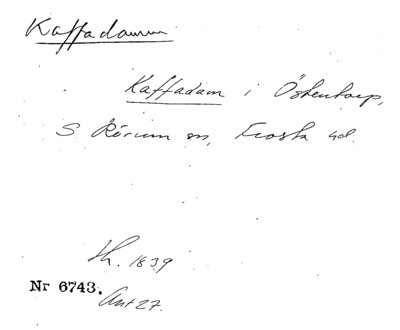 Kaffadamm
Kaffadam i Östentorp,
S Rörum sn, Frosta hd.
Sk. 1839
Nr 6743.
Ant 27.